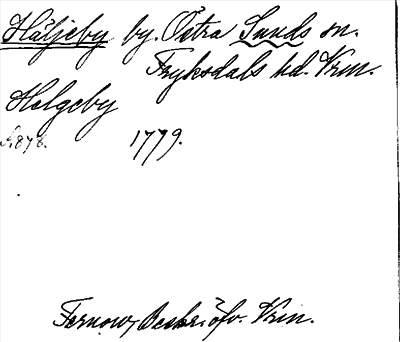 Häljeby by. Östra Sunds sn.
Fryksdals hd. Vrm.
Helgeby
s. 878. 1779.
Fernow, Beskr. öfv. Vrm.